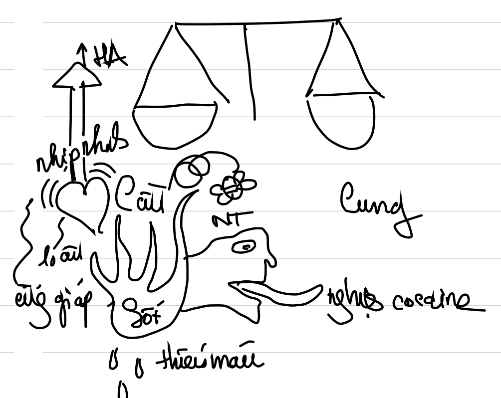 HA
nhịp nhanh
Cầu
NT
Cung
lo âu
cường giáp
Sốt
nghiện cocaine
thiếu máu